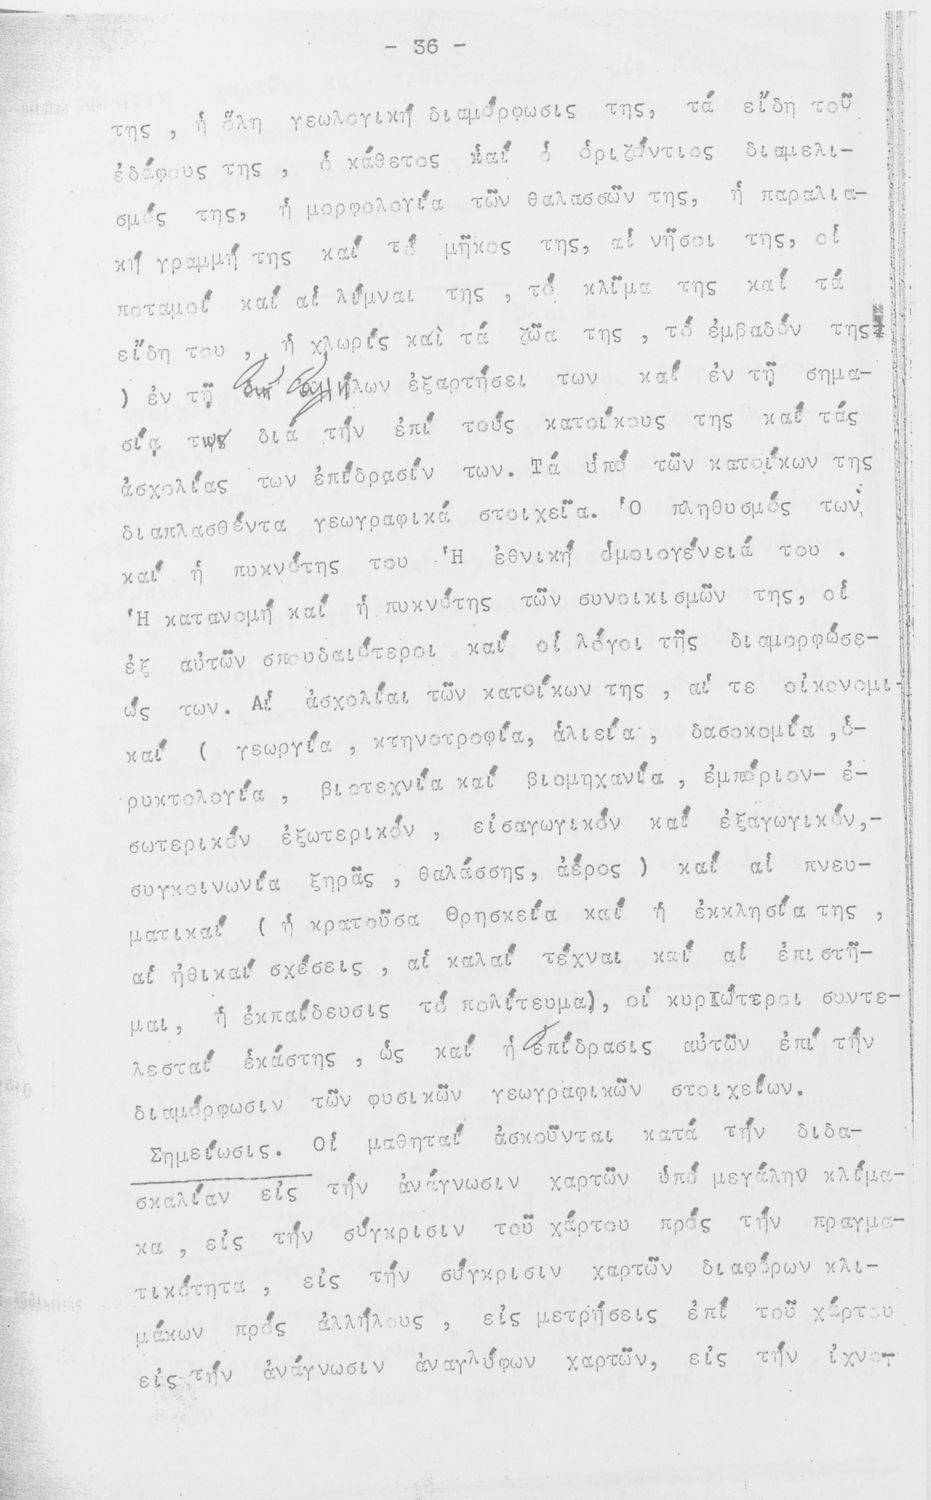 - 36 -
της , ἡ ὅλη γεωλογική διαμόρφωσις της, τά εἴδη τοῦ
ἐδάφους της , ὁ κάθετος καί ὁ ὁριζόντιος διαμελι-
σμός της, ἡ μορφολογία τῶν θαλασσῶν της, ἡ παραλια-
κή γραμμή της καί τό μῆκος της, αἱ νῆσοι της, οἱ
ποταμοί καί αἱ λίμναι της , τό κλῖμα της καί τά
εἴδη του , ἡ χλωρίς καὶ τά ζῶα της , τό ἐμβαδόν της
) ἐν τῇ ἀλλήλων ἐξαρτήσει των καί ἐν τῇ σημα-
σίᾳ των διά τήν ἐπί τούς κατοίκους της καί τάς
ἀσχολίας των ἐπίδρασίν των. Τά ὑπό τῶν κατοίκων της
διαπλασθέντα γεωγραφικά στοιχεῖα. Ὁ πληθυσμός των,
καί ἡ πυκνότης του Ἡ ἐθνική ὁμοιογένειά του .
Ἡ κατανομή καί ἡ πυκνότης τῶν συνοικισμῶν της, οἱ
ἐξ αὐτῶν σπουδαιότεροι καί οἱ λόγοι τῆς διαμορφώσε-
ώς των. Αἱ ἀσχολίαι τῶν κατοίκων της , αἱ τε οἰκονομι-
καί ( γεωργία , κτηνοτροφία, ἁλιεία , δασοκομία ,ὁ-
ρυκτολογία , βιοτεχνία καί βιομηχανία , ἐμπόριον- ἐ-
σωτερικόν ἐξωτερικόν , εἰσαγωγικόν καί ἐξαγωγικόν,-
συγκοινωνία ξηρᾶς , θαλάσσης, ἀέρος ) καί αἱ πνευ-
ματικαί ( ἡ κρατοῦσα θρησκεία καί ἡ ἐκκλησία της ,
αἱ ἠθικαί σχέσεις , αἱ καλαί τέχναι καί αἱ ἐπιστῆ-
μαι, ἡ ἐκπαίδευσις τό πολίτευμα), οἱ κυριώτεροι συντε-
λεσταί ἑκάστης , ὡς καί ἡ ἐπίδρασις αὐτῶν ἐπί τήν
διαμόρφωσιν τῶν φυσικῶν γεωγραφικῶν στοιχείων.
Σημείωσις. Οἱ μαθηταί ἀσκοῦνται κατά τήν διδα-
σκαλίαν εἰς τήν ἀνάγνωσιν χαρτῶν ὑπό μεγάλην κλίμα-
κα , εἰς τήν σύγκρισιν τοῦ χάρτου πρός τήν πραγμα-
τικότητα , εἰς τήν σύγκρισιν χαρτῶν διαφόρων κλι-
μάκων πρός ἀλλήλους , εἰς μετρήσεις ἐπί τοῦ χάρτου
εἰς τήν ἀνάγνωσιν ἀναγλύφων χαρτῶν, εἰς τήν ἰχνο-